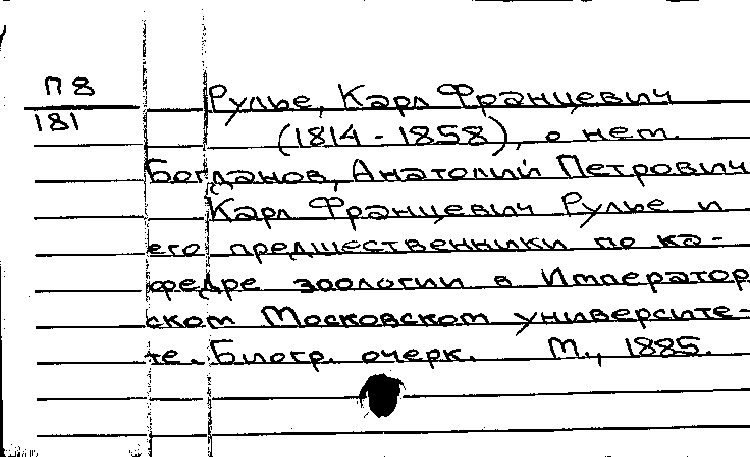 П8
181
Рулье, Карл Францевич
(1814-1858), о нем.
Богданов, Анатолий Петрович
Карл Францевич Рулье и
его предшественники по ка-
федре зоологии в Император
ском Московском университе-
те. Биогр. очерк. М., 1885.